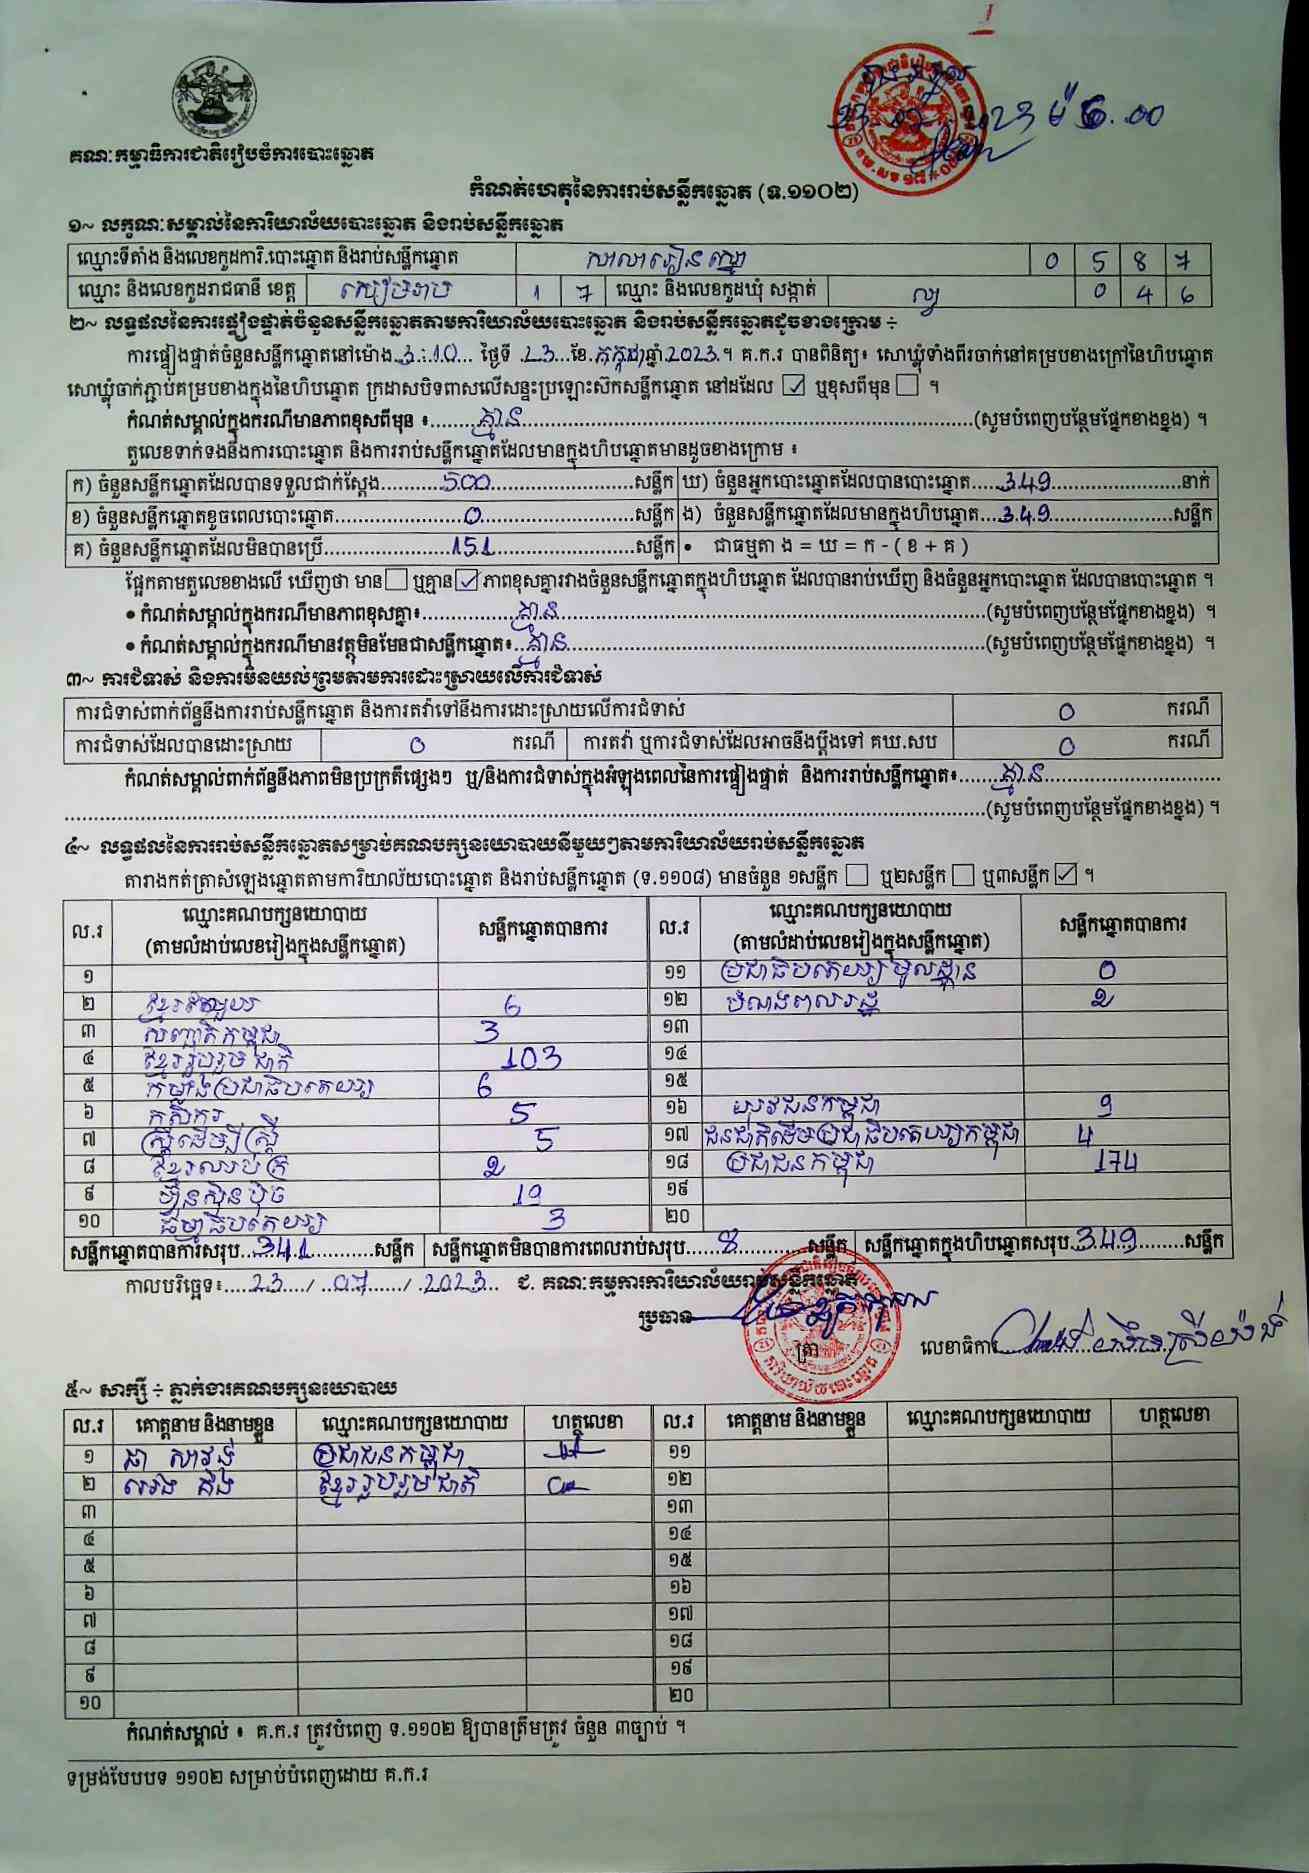 គណៈកម្មាធិការជាតិរៀបចំការបោះឆ្នោត
2023 ម៉ 6:00
កំណត់ហេតុនៃការរាប់សន្លឹកឆ្នោត (ទ.១១០២)
១~ លក្ខណៈសម្គាល់នៃការិយាល័យបោះឆ្នោត និងរាប់សន្លឹកឆ្នោត
ឈ្មោះទីតាំង និងលេខកូដការិ.បោះឆ្នោត និងរាប់សន្លឹកឆ្នោត សាលារៀន 0 5 8 7
ឈ្មោះ និងលេខកូដរាជធានី ខេត្ត សៀមរាប 1 7 ឈ្មោះ និងលេខកូដឃុំ សង្កាត់ ល្វ 0 4 6
២~ លទ្ធផលនៃការផ្ទៀងផ្ទាត់ចំនួនសន្លឹកឆ្នោតតាមការិយាល័យបោះឆ្នោត និងរាប់សន្លឹកឆ្នោតដូចខាងក្រោម ÷
ការផ្ទៀងផ្ទាត់ចំនួនសន្លឹកឆ្នោតនៅម៉ោង 3:10 ថ្ងៃទី 23 ខែ កក្កដា ឆ្នាំ 2023 ។ គ.ក.រ បានពិនិត្យ៖ សោឃ្លុំទាំងពីរចាក់នៅគម្របខាងក្រៅនៃហិបឆ្នោត
សោឃ្លុំចាក់ភ្ជាប់គម្របខាងក្នុងនៃហិបឆ្នោត ក្រដាសបិទពាសលើសន្ទះប្រឡោះស៊កសន្លឹកឆ្នោត នៅដដែល ☑ ឬខុសពីមុន ☐ ។
កំណត់សម្គាល់ក្នុងករណីមានភាពខុសពីមុន ៖ គ្មាន (សូមបំពេញបន្ថែមផ្នែកខាងខ្នង) ។
តួលេខទាក់ទងនឹងការបោះឆ្នោត និងការរាប់សន្លឹកឆ្នោតដែលមានក្នុងហិបឆ្នោតមានដូចខាងក្រោម ៖
ក) ចំនួនសន្លឹកឆ្នោតដែលបានទទួលជាក់ស្តែង 500 សន្លឹក ឃ) ចំនួនអ្នកបោះឆ្នោតដែលបានបោះឆ្នោត 349 នាក់
ខ) ចំនួនសន្លឹកឆ្នោតខូចពេលបោះឆ្នោត 0 សន្លឹក ង) ចំនួនសន្លឹកឆ្នោតដែលមានក្នុងហិបឆ្នោត 349 សន្លឹក
គ) ចំនួនសន្លឹកឆ្នោតដែលមិនបានប្រើ 151 សន្លឹក • ជាធម្មតា ង = ឃ = ក - ( ខ + គ )
ផ្អែកតាមតួលេខខាងលើ ឃើញថា មាន ☐ ឬគ្មាន ☑ ភាពខុសគ្នារវាងចំនួនសន្លឹកឆ្នោតក្នុងហិបឆ្នោត ដែលបានរាប់ឃើញ និងចំនួនអ្នកបោះឆ្នោត ដែលបានបោះឆ្នោត ។
• កំណត់សម្គាល់ក្នុងករណីមានភាពខុសគ្នា៖ គ្មាន (សូមបំពេញបន្ថែមផ្នែកខាងខ្នង) ។
• កំណត់សម្គាល់ក្នុងករណីមានវត្ថុមិនមែនជាសន្លឹកឆ្នោត៖ គ្មាន (សូមបំពេញបន្ថែមផ្នែកខាងខ្នង) ។
៣~ ការជំទាស់ និងការមិនយល់ព្រមតាមការដោះស្រាយលើការជំទាស់
ការជំទាស់ពាក់ព័ន្ធនឹងការរាប់សន្លឹកឆ្នោត និងការតវ៉ាទៅនឹងការដោះស្រាយលើការជំទាស់ 0 ករណី
ការជំទាស់ដែលបានដោះស្រាយ 0 ករណី ការតវ៉ា ឬការជំទាស់ដែលអាចនឹងប្តឹងទៅ គឃ.សប 0 ករណី
កំណត់សម្គាល់ពាក់ព័ន្ធនឹងភាពមិនប្រក្រតីផ្សេងៗ ឬ/និងការជំទាស់ក្នុងអំឡុងពេលនៃការផ្ទៀងផ្ទាត់ និងការរាប់សន្លឹកឆ្នោត៖ គ្មាន
(សូមបំពេញបន្ថែមផ្នែកខាងខ្នង) ។
៤~ លទ្ធផលនៃការរាប់សន្លឹកឆ្នោតសម្រាប់គណបក្សនយោបាយនីមួយៗតាមការិយាល័យរាប់សន្លឹកឆ្នោត
តារាងកត់ត្រាសំឡេងឆ្នោតតាមការិយាល័យបោះឆ្នោត និងរាប់សន្លឹកឆ្នោត (ទ.១១០៨) មានចំនួន ១សន្លឹក ☐ ឬ២សន្លឹក ☐ ឬ៣សន្លឹក ☑ ។
ល.រ ឈ្មោះគណបក្សនយោបាយ (តាមលំដាប់លេខរៀងក្នុងសន្លឹកឆ្នោត) សន្លឹកឆ្នោតបានការ ល.រ ឈ្មោះគណបក្សនយោបាយ (តាមលំដាប់លេខរៀងក្នុងសន្លឹកឆ្នោត) សន្លឹកឆ្នោតបានការ
១ ១១ ប្រជាធិបតេយ្យមូលដ្ឋាន 0
២ ខ្មែរតែមួយ 6 ១២ បំណងពលរដ្ឋ 2
៣ សញ្ជាតិកម្ពុជា 3 ១៣
៤ ខ្មែររួបរួមជាតិ 103 ១៤
៥ កម្លាំងប្រជាធិបតេយ្យ 6 ១៥
៦ កសិករ 5 ១៦ យុវជនកម្ពុជា 9
៧ ស្ត្រីដើម្បីស្ត្រី 5 ១៧ ជនជាតិដើមប្រជាធិបតេយ្យកម្ពុជា 4
៨ ខ្មែរឈប់ក្រ 2 ១៨ ប្រជាជនកម្ពុជា 174
៩ ហ៊្វុនស៊ិនប៉ិច 19 ១៩
១០ ធម្មាធិបតេយ្យ 3 ២០
សន្លឹកឆ្នោតបានការសរុប 341 សន្លឹក សន្លឹកឆ្នោតមិនបានការពេលរាប់សរុប 8 សន្លឹក សន្លឹកឆ្នោតក្នុងហិបឆ្នោតសរុប 349 សន្លឹក
កាលបរិច្ឆេទ៖ 23 / 07 / 2023 ជ. គណៈកម្មការការិយាល័យរាប់សន្លឹកឆ្នោត
ប្រធាន
ត្រា
លេខាធិការ
៥~ សាក្សី ÷ ភ្នាក់ងារគណបក្សនយោបាយ
ល.រ គោត្តនាម និងនាមខ្លួន ឈ្មោះគណបក្សនយោបាយ ហត្ថលេខា ល.រ គោត្តនាម និងនាមខ្លួន ឈ្មោះគណបក្សនយោបាយ ហត្ថលេខា
១ ជា សាវន់ ប្រជាជនកម្ពុជា ១១
២ ខ្មែររួបរួមជាតិ ១២
៣ ១៣
៤ ១៤
៥ ១៥
៦ ១៦
៧ ១៧
៨ ១៨
៩ ១៩
១០ ២០
កំណត់សម្គាល់ ៖ គ.ក.រ ត្រូវបំពេញ ទ.១១០២ ឱ្យបានត្រឹមត្រូវ ចំនួន ៣ច្បាប់ ។
ទម្រង់បែបបទ ១១០២ សម្រាប់បំពេញដោយ គ.ក.រ